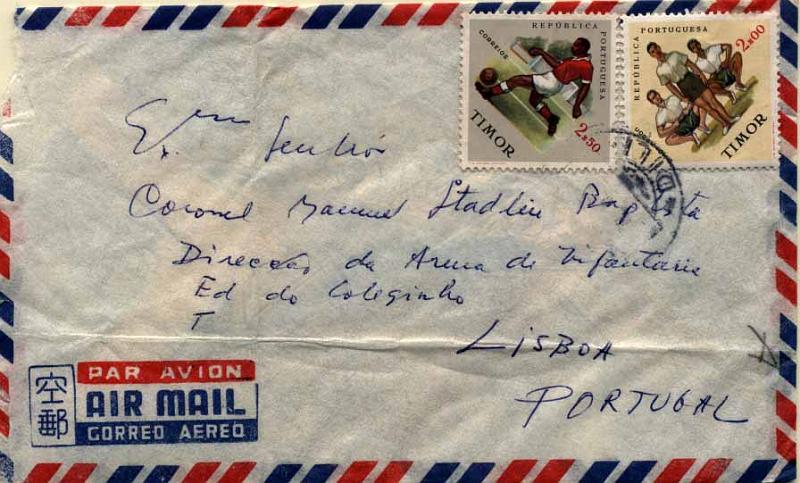 REPÚBLICA PORTUGUESA
CORREIOS
TIMOR
2$50
REPÚBLICA PORTUGUESA
2$00
TIMOR
Exmo Senhor
Coronel Manuel Stadlin Baptista
Direcção da Arma de Infantaria
Ed do Coleginho
T
LISBOA
PORTUGAL
空郵
PAR AVION
AIR MAIL
CORREO AEREO